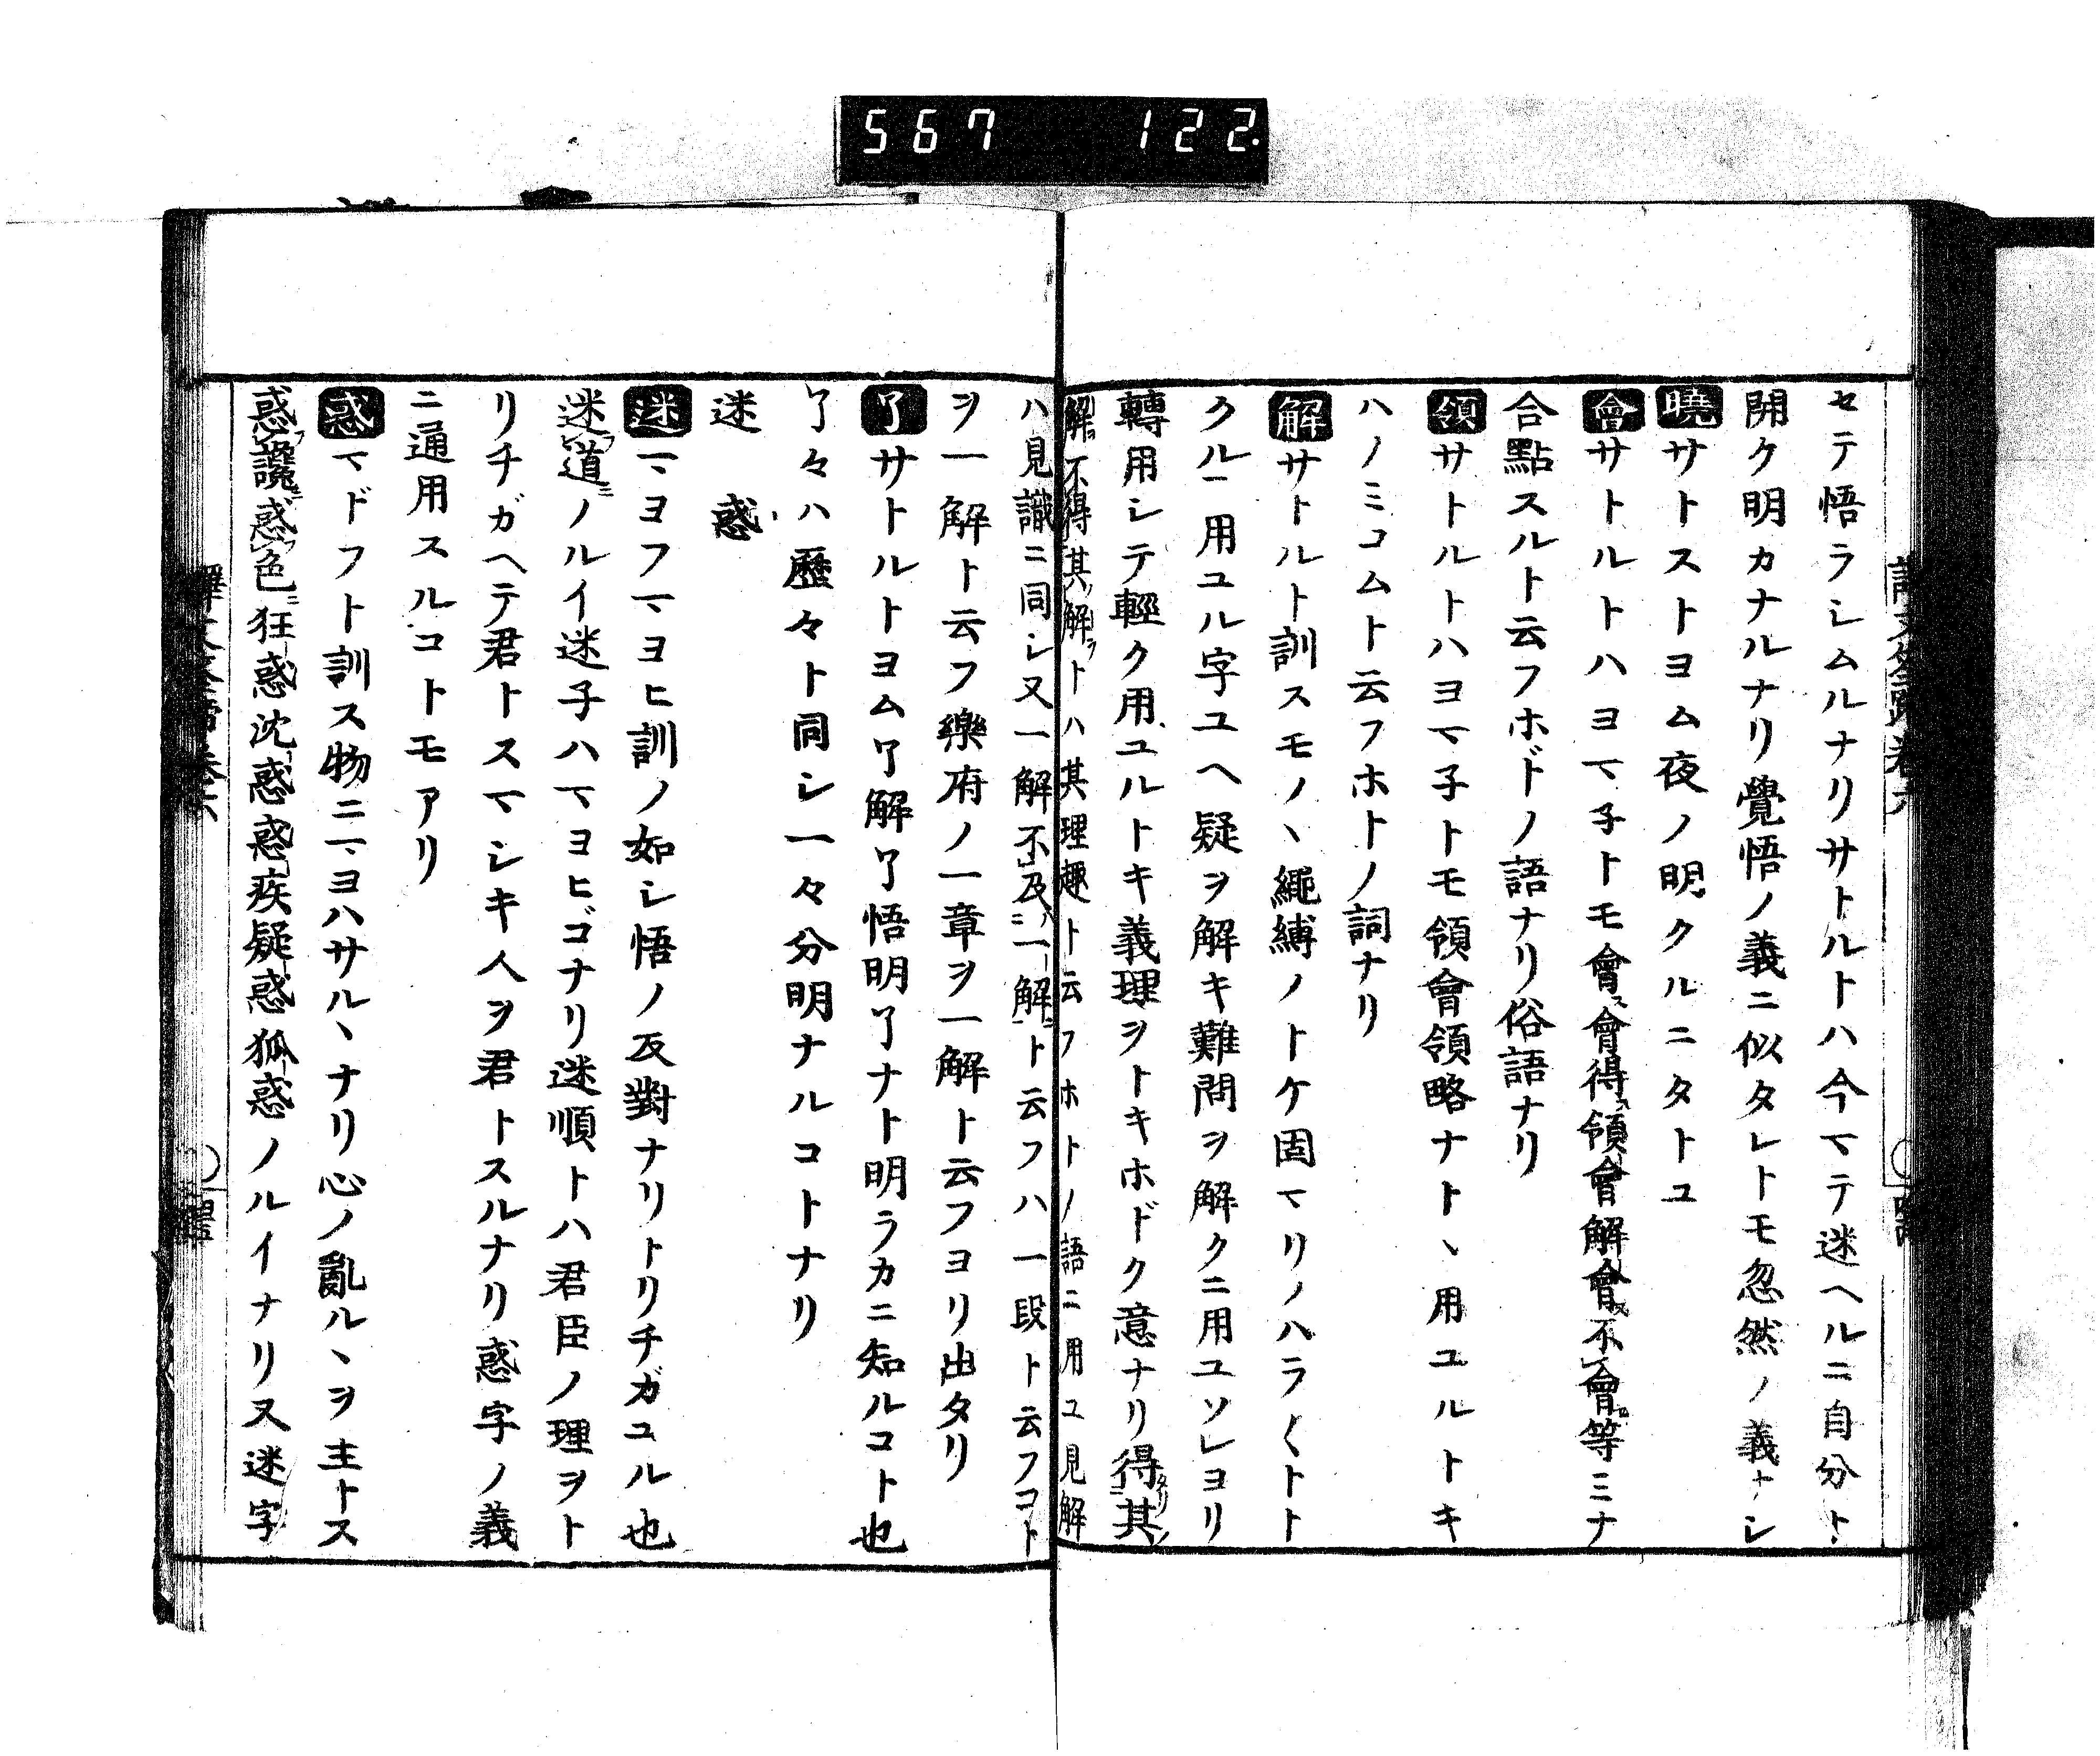 567 122.
セテ悟ラシムルナリサトルトハ今マテ迷ヘルニ自分ト
開ク明カナルナリ覺悟ノ義ニ似タレトモ忽然ノ義ナシ
曉サトストヨム夜ノ明クルニタトユ
會サトルトハヨマ子トモ會ス會得ス領會解會ス不會等ミナ
合點スルト云フホドノ語ナリ俗語ナリ
領サトルトハヨマ子トモ領會領略ナトヽ用ユルトキ
ハノミコムト云フホトノ詞ナリ
解サトルト訓スモノヽ繩縛ノトケ固マリノハラ〱トト
クルニ用ユル字ユヘ疑ヲ解キ難問ヲ解クニ用ユソレヨリ
轉用シテ輕ク用ユルトキ義理ヲトキホドク意ナリ得其
解不得其解トハ其理趣ト云フホトノ語ニ用ユ見解
ハ見識ニ同シ又一解不及一解ト云フハ一段ト云フコト
ヲ一解ト云フ樂府ノ一章ヲ一解ト云フヨリ出タリ
了サトルトヨム了解了悟明了ナト明ラカニ知ルコト也
了々ハ歷々ト同シ一々分明ナルコトナリ
迷 惑
迷マヨフマヨヒ訓ノ如シ悟ノ反對ナリトリチガユル也
迷道ノルイ迷子ハマヨヒゴナリ迷順トハ君臣ノ理ヲト
リチガヘテ君トスマシキ人ヲ君トスルナリ惑字ノ義
ニ通用スルコトモアリ
惑マドフト訓ス物ニマヨハサルヽナリ心ノ亂ルヽヲ主トス
惑讒惑色狂惑沈惑惑疾疑惑狐惑ノルイナリ又迷字